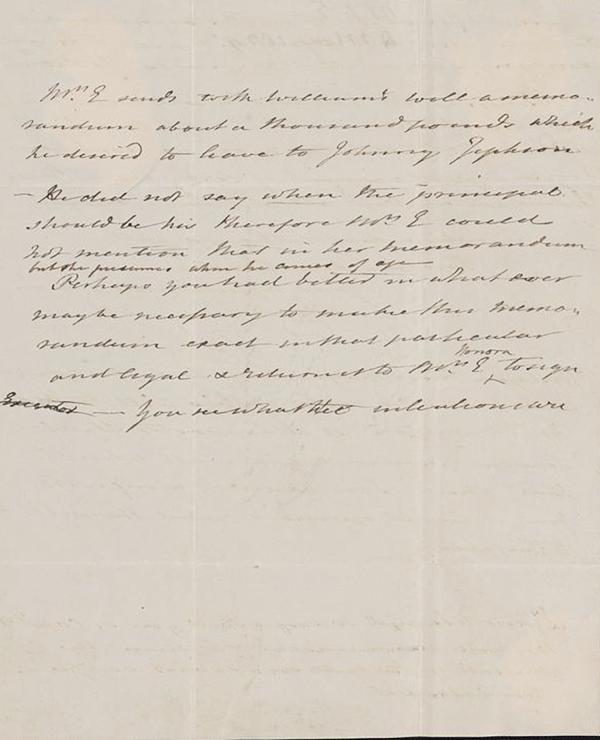 Mrs E sends with William's will a memo-
randum about a thousand pounds which
he desired to leave to Johnny Jephson
— He did not say when the principal
should be his therefore Mrs E could
not mention that in her memorandum
but she presumes when he comes of age
Perhaps you had better in what ever
may be necessary to make this memo-
randum exact in that particular
Honora
and legal & return it to Mrs E to sign
Executor — You see what the intentions are